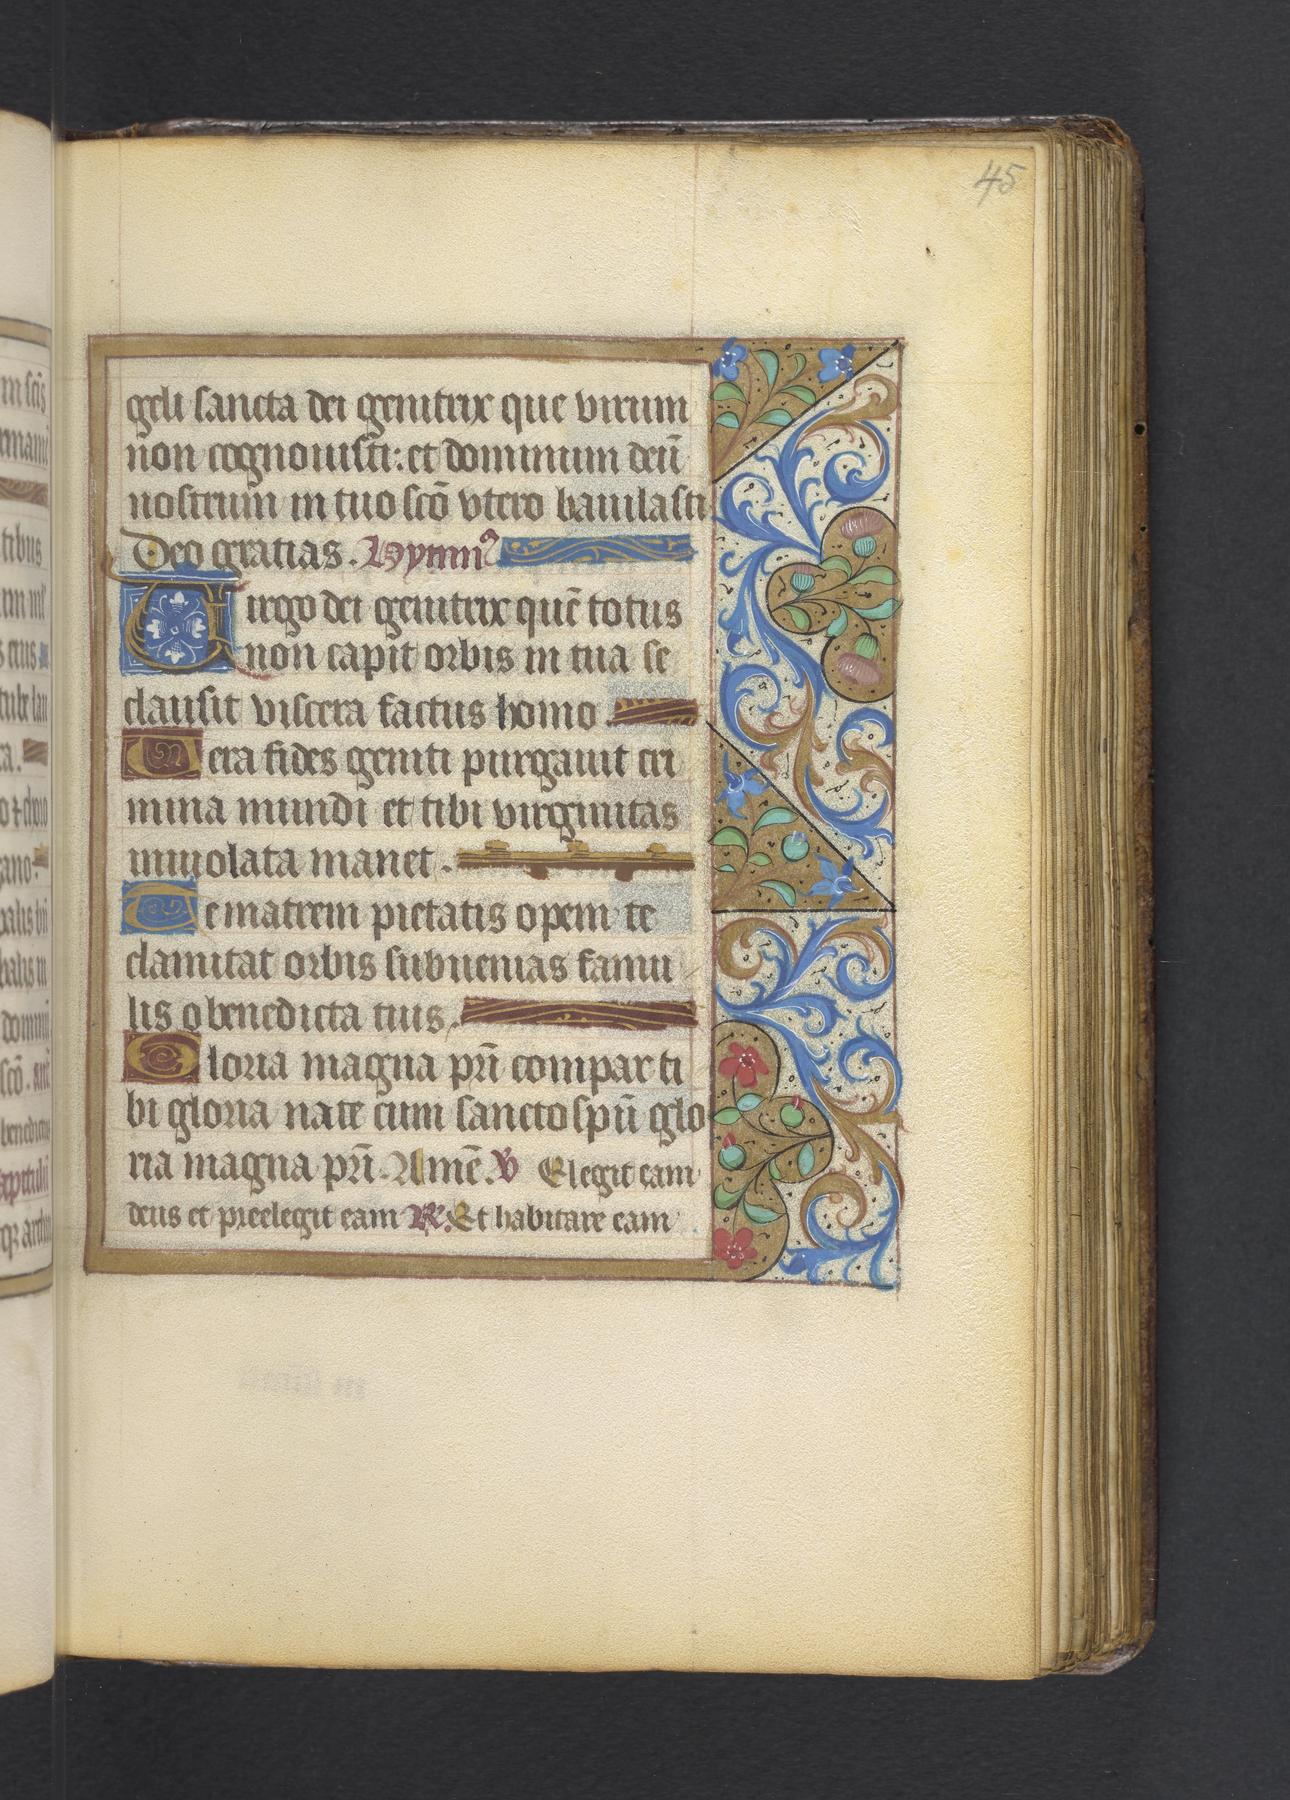 45
geli sancta dei genitrix que virum
non cognouisti: et dominum deū
nostrum in tuo scō vtero baiulasti
Deo gratias. Hymnꝰ
Uirgo dei genitrix quē totus
non capit orbis in tua se
clausit viscera factus homo.
Uera fides geniti purgauit cri
mina mundi et tibi virginitas
inuiolata manet.
Te matrem pietatis opem te
clamitat orbis subuenias famu
lis o benedicta tuis.
Gloria magna pr̄i compar ti
bi gloria nate cum sancto spū glo
ria magna pr̄i. Amē. ℣ Elegit eam
deus et preelegit eam ℟. Et habitare eam